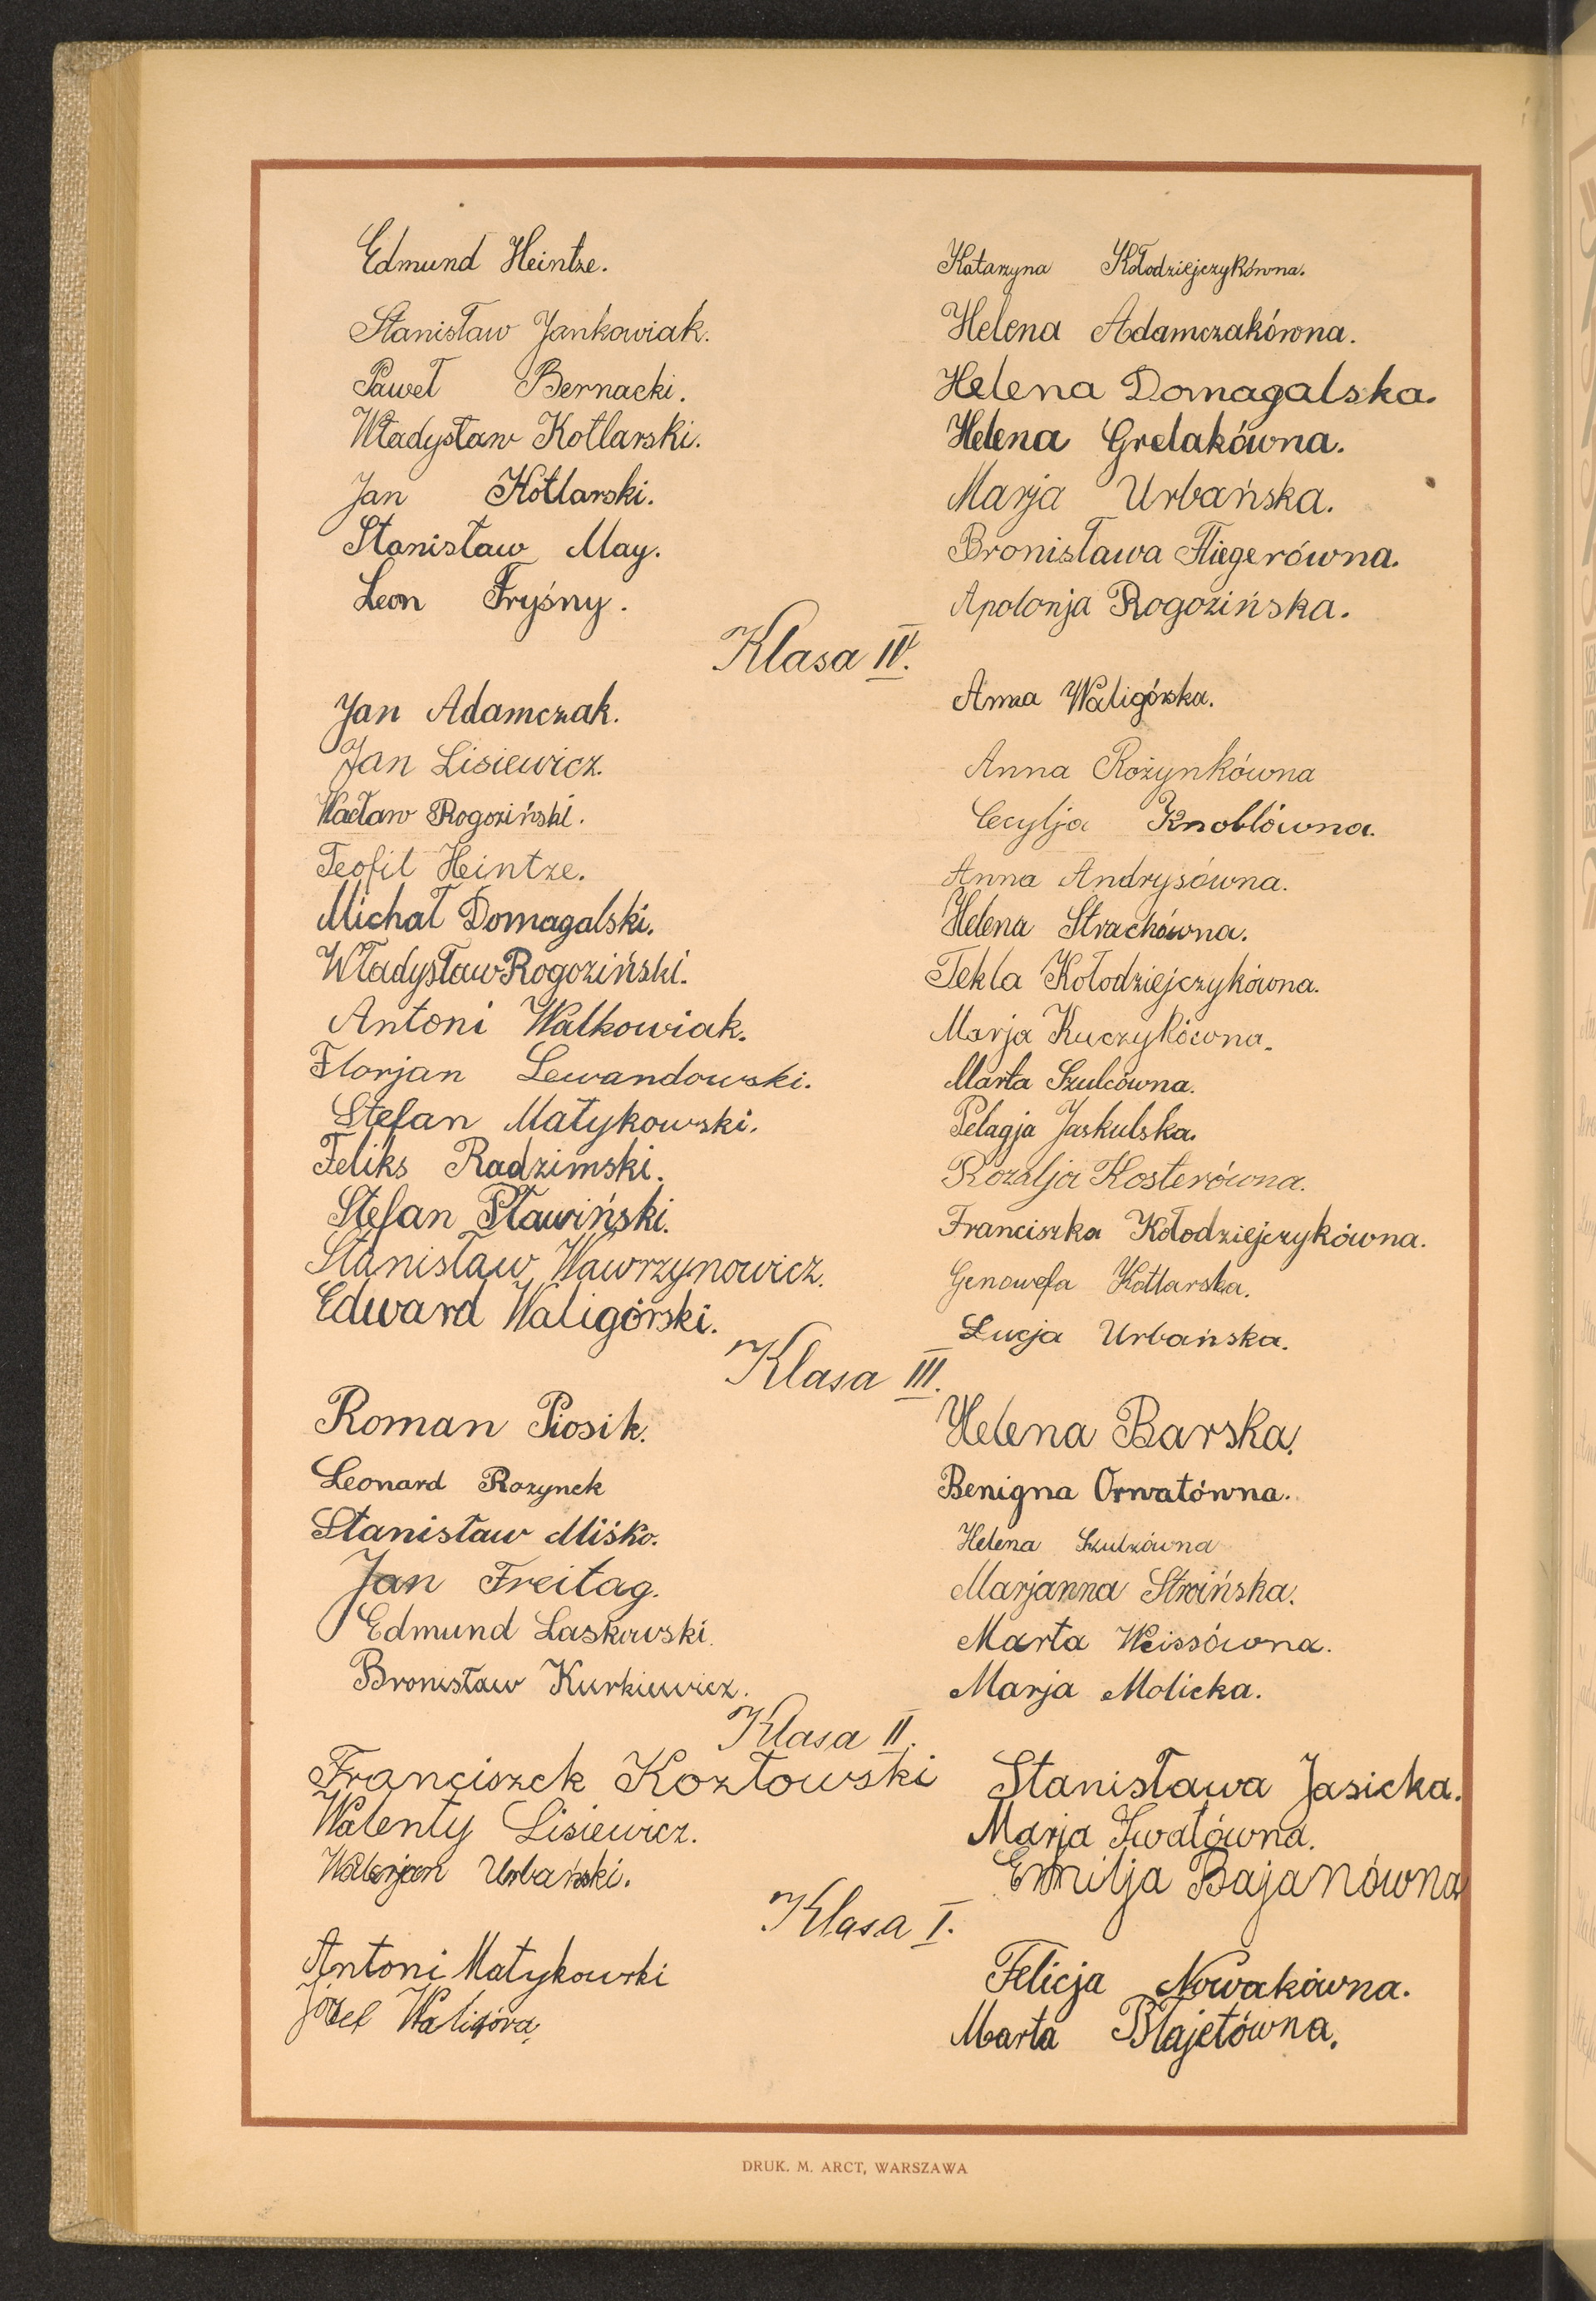 Edmund Heintze.
Stanisław Jankowiak.
Paweł Bernacki.
Władysław Kotlarski.
Jan Kotlarski.
Stanisław May.
Leon Fryśny.
Katarzyna Kołodziejczykówna.
Helena Adamczakówna.
Helena Domagalska.
Helena Grelakówna.
Marja Urbańska.
Bronisława Fliegerówna.
Apolonja Rogozińska.
Klasa IV.
Jan Adamczak.
Jan Lisiewicz.
Wacław Rogoziński.
Teofil Heintze.
Michał Domagalski.
Władysław Rogoziński.
Antoni Walkowiak.
Florjan Lewandowski.
Stefan Matykowski.
Feliks Radzimski.
Stefan Pławiński.
Stanisław Wawrzynowicz.
Edward Waligórski.
Anna Waligórska.
Anna Rożynkówna
Cecylja Knoblówna.
Anna Andrysówna.
Helena Strachówna.
Tekla Kołodziejczykówna.
Marja Kuczykówna.
Marta Szulcówna.
Pelagja Jaskulska.
Rozalja Kosterówna.
Franciszka Kołodziejczykówna.
Genowefa Kotlarska.
Łucja Urbańska.
Klasa III.
Roman Piosik.
Leonard Rozynek
Stanisław Miśko.
Jan Freitag.
Edmund Laskowski.
Bronisław Kurkiewicz.
Helena Barska.
Benigna Orwatówna.
Helena Szulzówna
Marjanna Stroińska.
Marta Weissówna.
Marja Molicka.
Klasa II.
Franciszek Kozłowski
Walenty Lisiewicz.
Walerjan Urbański.
Stanisława Jasicka.
Marja Iwałówna.
Emilja Bajanówna
Klasa I.
Antoni Matykowski
Józef Waligóra.
Felicja Nowakówna.
Marta Błajetówna.
DRUK. M. ARCT, WARSZAWA